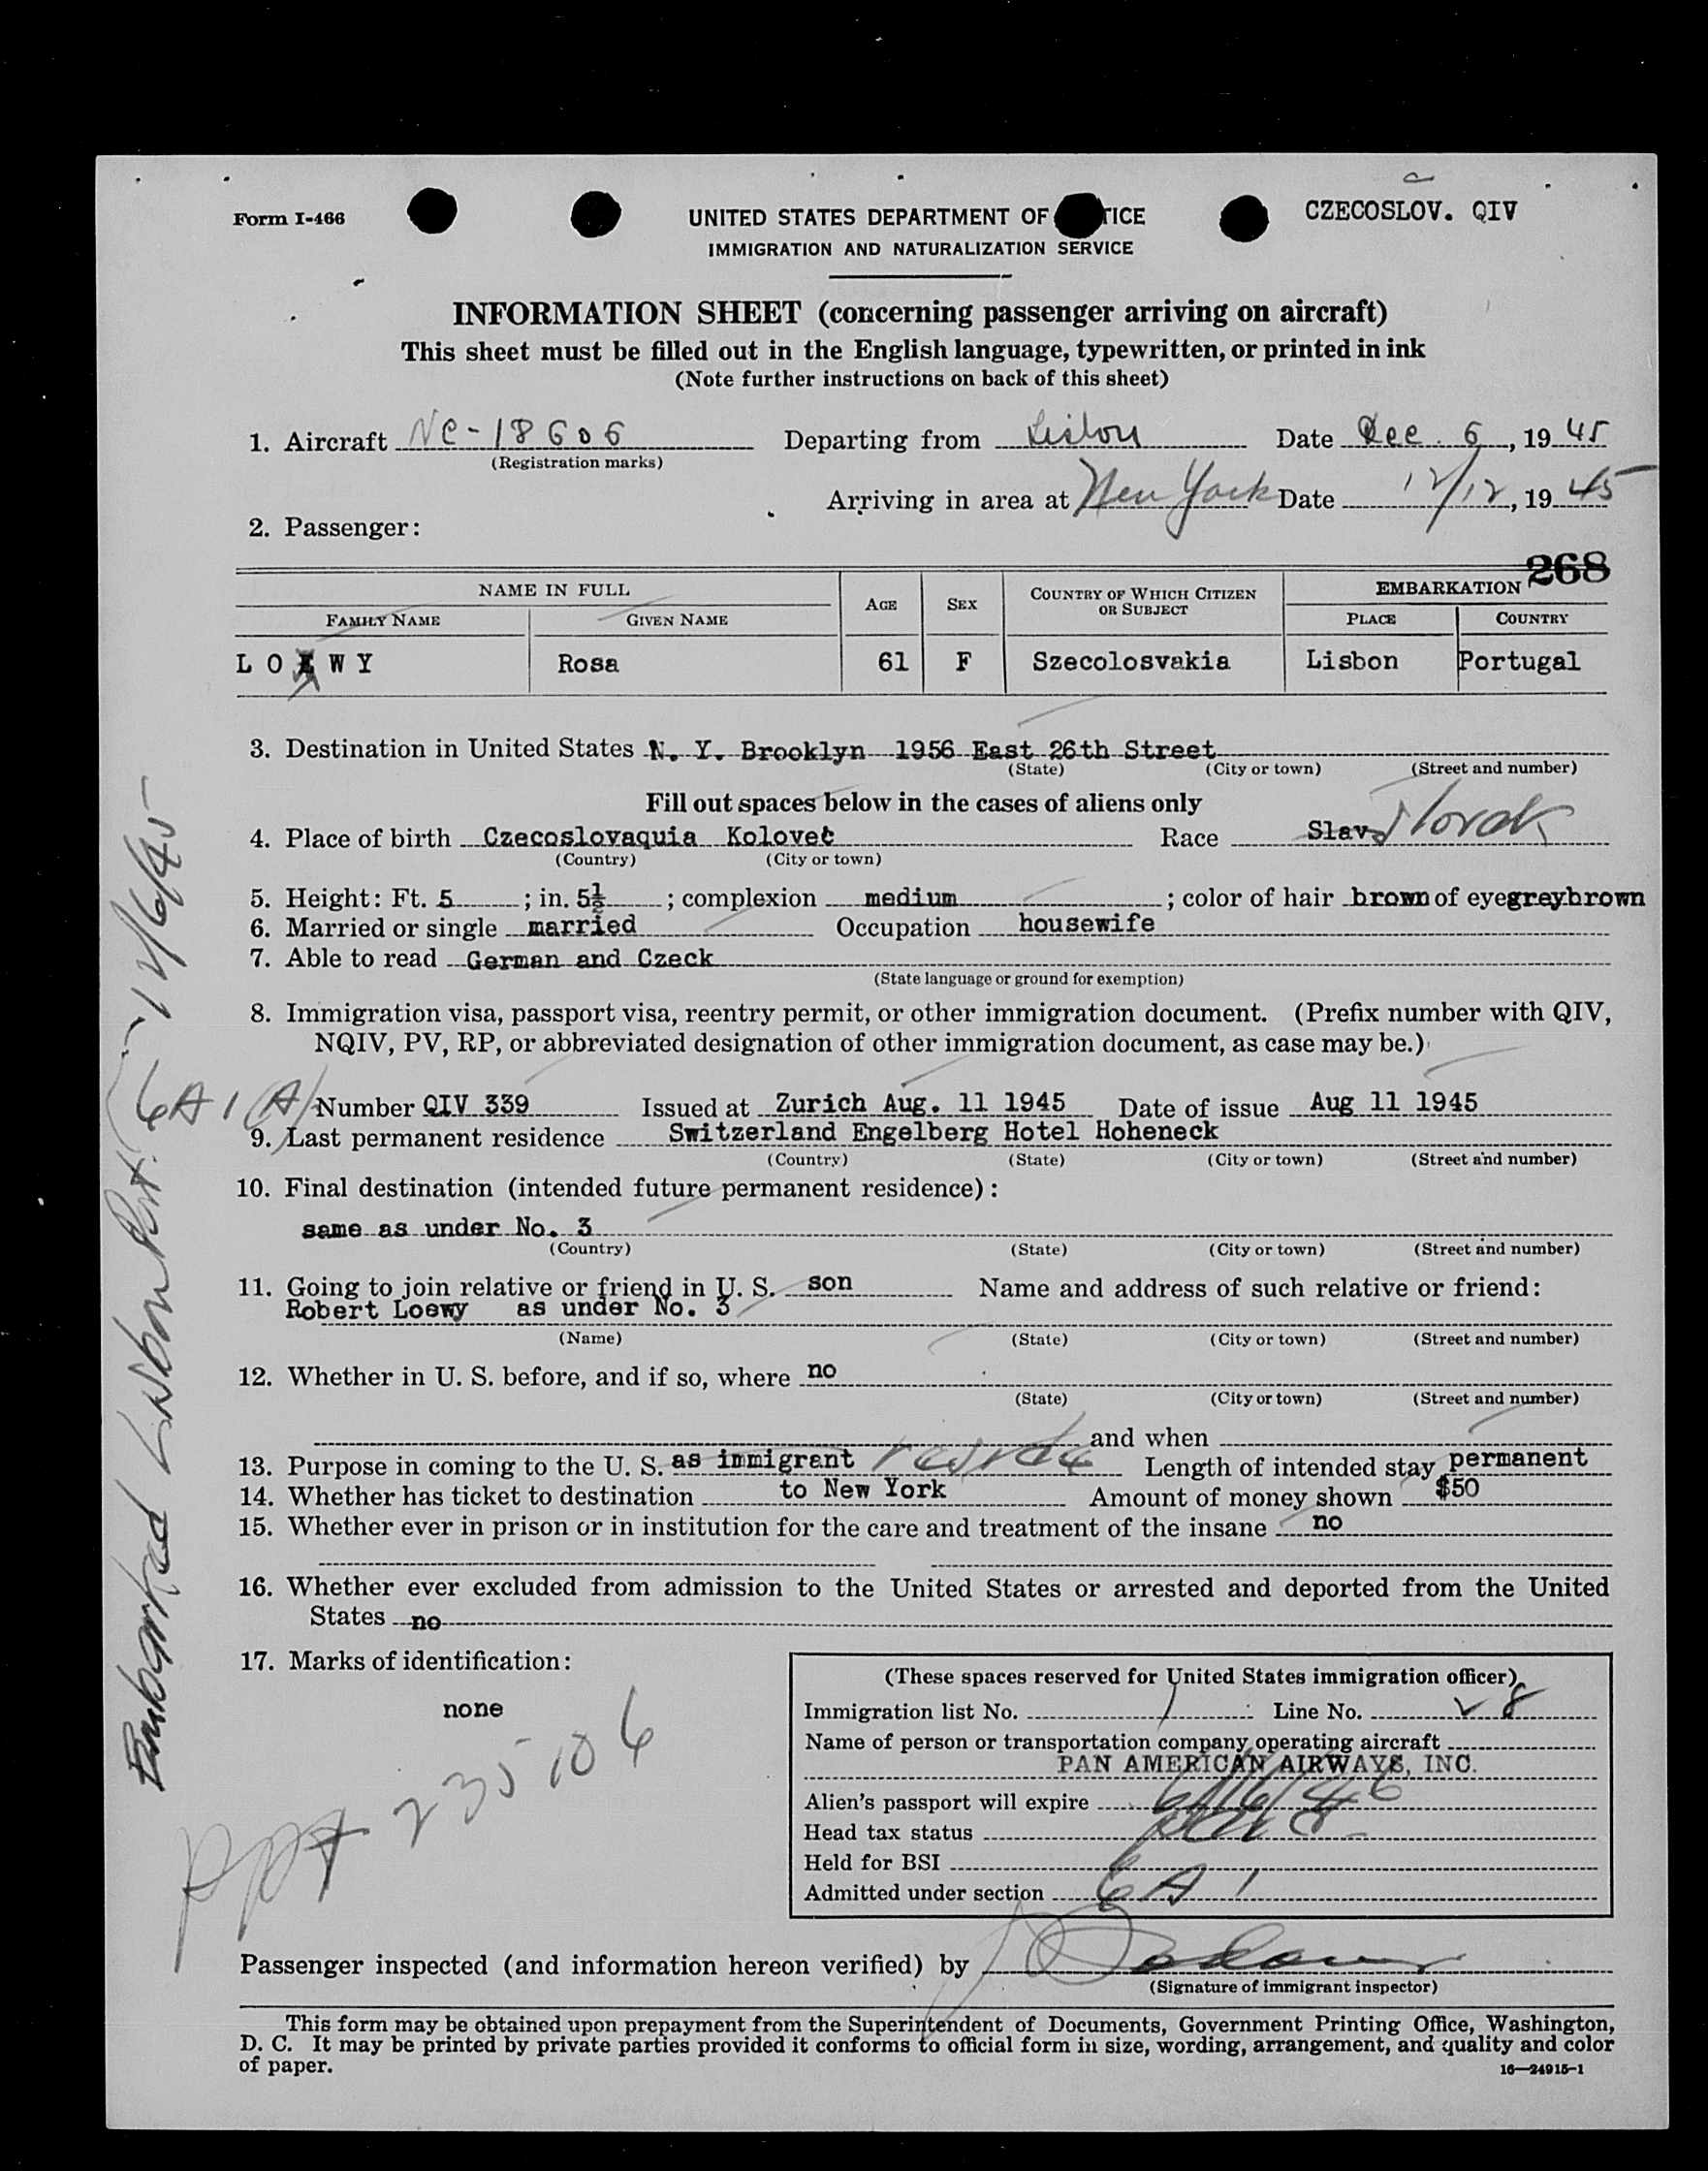 CZECOSLOV. QIV
Form I-466
UNITED STATES DEPARTMENT OF TICE
IMMIGRATION AND NATURALIZATION SERVICE
INFORMATION SHEET (concerning passenger arriving on aircraft)
This sheet must be filled out in the English language, typewritten, or printed in ink
(Note further instructions on back of this sheet)
1. Aircraft NC-18606 Departing from Lisbon Date Dec. 6, 1945
(Registration marks)
Arriving in area at New York Date 12/12, 1945
2. Passenger:
268
NAME IN FULL AGE SEX COUNTRY OF WHICH CITIZEN OR SUBJECT EMBARKATION
FAMILY NAME GIVEN NAME PLACE COUNTRY
L O E W Y Rosa 61 F Szecolosvakia Lisbon Portugal
3. Destination in United States N. Y. Brooklyn 1956 East 26th Street
(State) (City or town) (Street and number)
Fill out spaces below in the cases of aliens only
4. Place of birth Czecoslovaquia Kolovet Race Slav Slovak
(Country) (City or town)
5. Height: Ft. 5 ; in. 5½ ; complexion medium ; color of hair brown of eye greybrown
6. Married or single married Occupation housewife
7. Able to read German and Czeck
(State language or ground for exemption)
8. Immigration visa, passport visa, reentry permit, or other immigration document. (Prefix number with QIV,
NQIV, PV, RP, or abbreviated designation of other immigration document, as case may be.)
6A1(A) Number QIV 339 Issued at Zurich Aug. 11 1945 Date of issue Aug 11 1945
9. Last permanent residence Switzerland Engelberg Hotel Hoheneck
(Country) (State) (City or town) (Street and number)
10. Final destination (intended future permanent residence):
same as under No. 3
(Country) (State) (City or town) (Street and number)
11. Going to join relative or friend in U. S. son Name and address of such relative or friend:
Robert Loewy as under No. 3
(Name) (State) (City or town) (Street and number)
12. Whether in U. S. before, and if so, where no
(State) (City or town) (Street and number)
and when
13. Purpose in coming to the U. S. as immigrant reside Length of intended stay permanent
14. Whether has ticket to destination to New York Amount of money shown $50
15. Whether ever in prison or in institution for the care and treatment of the insane no
16. Whether ever excluded from admission to the United States or arrested and deported from the United
States no
17. Marks of identification:
none
ppt 235106
(These spaces reserved for United States immigration officer)
Immigration list No. 1 Line No. 28
Name of person or transportation company operating aircraft
PAN AMERICAN AIRWAYS, INC.
Alien's passport will expire 6/16/46
Head tax status
Held for BSI
Admitted under section 6A1
Passenger inspected (and information hereon verified) by
(Signature of immigrant inspector)
This form may be obtained upon prepayment from the Superintendent of Documents, Government Printing Office, Washington,
D. C. It may be printed by private parties provided it conforms to official form in size, wording, arrangement, and quality and color
of paper.
16—24915-1
Embarked Lisbon Port. 12/6/45